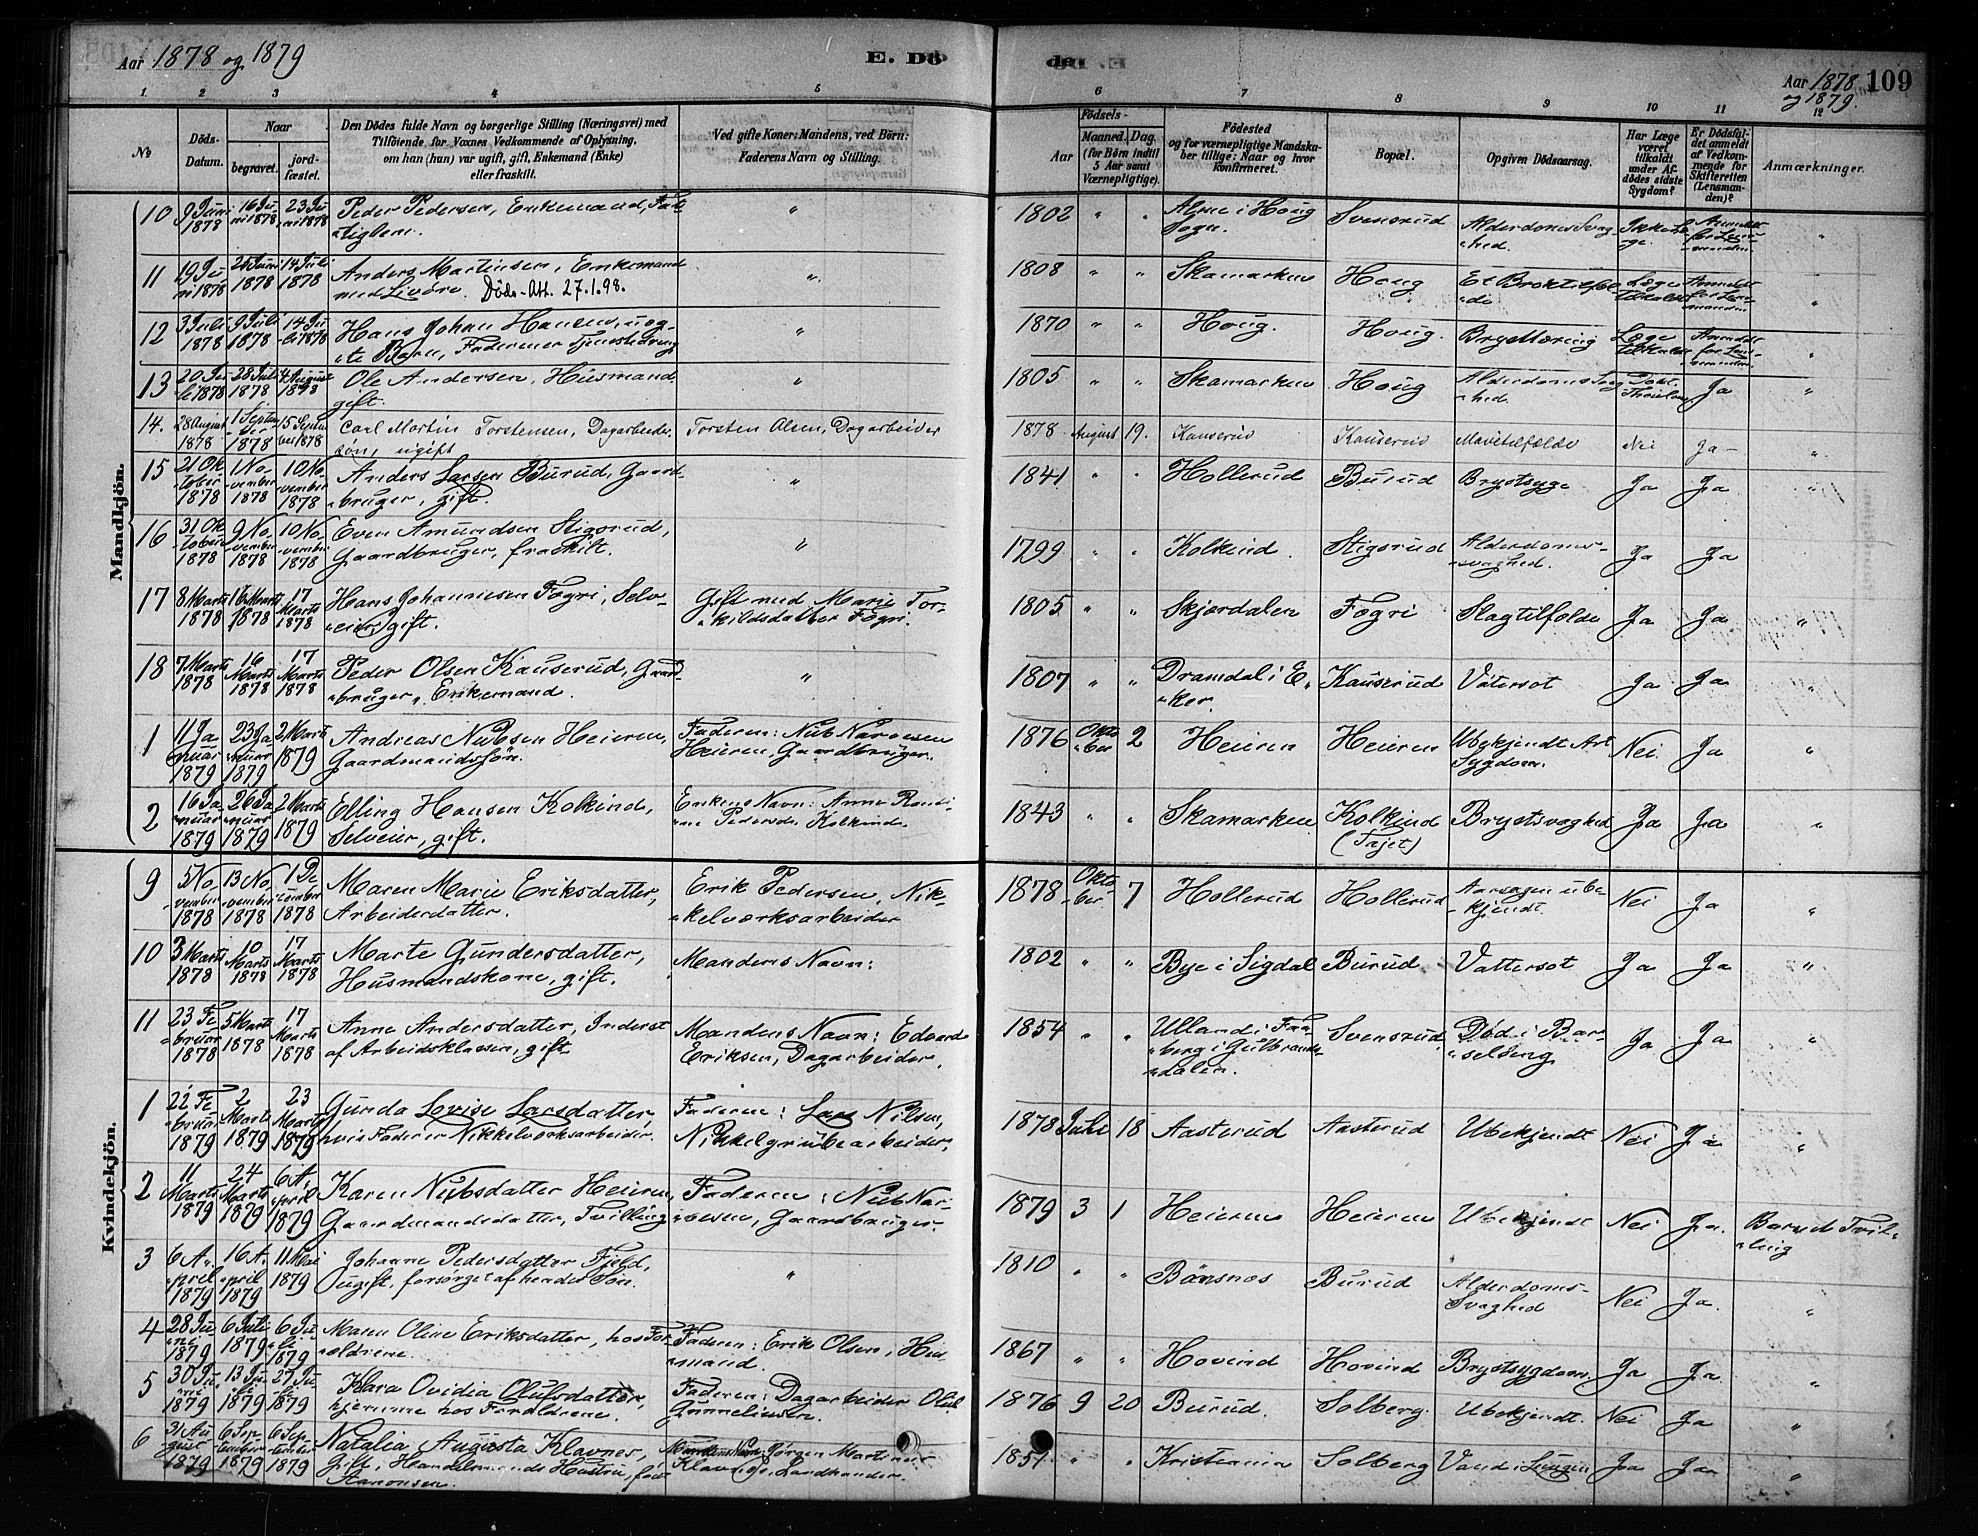 Aar 1878 og 1879
E. Dö
de
Aar 1878 og 1879.
109
1. 2 3 4 5 6 7 8 9 10 11 12
No
Döds-Datum.
Naar
begravet.
jord-fæstet.
Den Dödes fulde Navn og borgerlige Stilling (Næringsvei) med
Tilföiende for Voxnes Vedkommende af Oplysning,
om han (hun) var ugift, gift, Enkemand (Enke)
eller fraskilt.
Ved gifte Koner: Mandens, ved Börn:
Faderens Navn og Stilling.
Födsels-
Aar
Maaned. Dag.
(for Börn indtil
5 Aar samt
Værnepligtige).
Födested
og for værnepligtige Mandska-
ber tillige: Naar og hvor
Konfirmeret.
Bopæl.
Opgiven Dödsaarsag.
Har Læge
været
tilkaldt
under Af-
dödes sidste
Sygdom?
Er Dödsfal-
det anmeldt
af Vedkom-
mende for
Skifteretten
(Lensman-
den)?
Anmærkninger.
Mandkjön.
10 9 Juni 1878 16 Juni 1878 23 Juni 1878 Peder Pedersen, Enkemand, Fattiglem. " 1802 " " i Houg Sogn. Svensrud Alderdoms Svaghed. Ikke Læge Anmeldt for Lensmanden "
11 19 Juni 1878 25 Juni 1878 14 Juli 1878 Anders Martinsen, Enkemand med Livöre. Döds-Att. 27.1.98. " 1808 " " Skamarken Houg Et Broktilfælde Læge tilkaldt Anmeldt for Lensmanden "
12 3 Juli 1878 9 Juli 1878 14 Juli 1878 Hans Johan Hansen, uægte Barn, Faderen er Tjenestedreng " 1870 " " Houg. Houg. Brysttæring Læge tilkaldt Anmeldt for Lensmanden "
13 20 Juli 1878 28 Juli 1878 4 August 1878 Ole Andersen, Husmand gift. " 1805 " " Skamarken Houg Alderdoms Svaghed. Ja "
14. 28 August 1878 1 September 1878 15 September 1878 Carl Martin Torstensen, Dagarbeidersön, ugift Torsten Olsen, Dagarbeider 1878 August 19. Kauserud Kauserud Mavetilfælde Nei Ja "
15 21 Oktober 1878 1 November 1878 10 November 1878 Anders Larsen Burud, Gaardbruger, gift. " 1841 " " Hollerud Burud Brystsyge Ja Ja "
16 31 Oktober 1878 9 November 1878 10 November 1878 Even Amundsen Stigsrud, Gaardbruger, fraskilt. " 1799 " " Kolkind. Stigsrud Alderdomssvaghed. Ja Ja
17 8 Marts 1878 16 Marts 1878 17 Marts 1878 Hans Johannesen Fogri, Selveier, gift. Gift med Marie Torkildsdatter Fogri. 1805 " " Skjærdalen Fogri Slagtilfælde Ja Ja "
18 7 Marts 1878 16 Marts 1878 17 Marts 1878 Peder Olsen Kauserud, Gaardbruger, Enkemand. " 1807 " " Dramdal i Eker. Kauserud Vatersot Ja Ja "
1 11 Januar 1879 23 Januar 1879 2 Marts 1879 Andreas Nubsen Heieren, Gaardmandssön. Faderen: Nub Narvesen Heieren, Gaardbruger. 1876 Oktober 2 Heieren Heieren Ubekjendt Art Sygdom. Nei Ja "
2 16 Januar 1879 26 Januar 1879 2 Marts 1879 Elling Hansen Kolkind, Selveier, gift. Enkens Navn: Anne Pedersd. Kolkind. 1843 " " Skamarken Kolkind (Tajet) Brystsvaghed Ja Ja "
Kvindekjön.
9 5 November 1878 13 November 1878 1 December 1878 Maren Marie Eriksdatter, Arbeiderdatter. Erik Pedersen, Nikkelværksarbeider 1878 Oktober 7 Hollerud Hollerud Aarsagen ubekjendt. Nei Ja "
10 3 Marts 1878 10 Marts 1878 17 Marts 1878 Marte Gundersdatter, Husmandskone, gift. Mandens Navn: 1802 " " Bye i Sigdal Burud Vattersot Ja Ja "
11 23 Februar 1878 5 Marts 1878 17 Marts 1878 Anne Andersdatter, Inderst af Arbeidsklassen, gift Mandens Navn: Edvard Eriksen, Dagarbeider. 1854 " " i Faaberg i Gulbrandsdalen. Svensrud Död i Barselseng Ja Ja "
1 22 Februar 1879 2 Marts 1879 23 Marts 1879 Gunda Lovise Larsdatter, hvis Fader er Nikkelværksarbeider. Faderen: Lars Nilsen, Nikkelgrubearbeider. 1878 Juli 18 Aasterud Aasterud Ubekjendt Nei Ja "
2 11 Marts 1879 24 Marts 1879 6 April 1879 Karen Nubsdatter Heieren, Gaardmandsdatter, Tvilling Faderen: Nub Narvesen, Gaardbruger. 1879 3 1 Heieren Heieren Ubekjendt Nei Ja. Barnet Tvilling
3 6 April 1879 16 April 1879 11 Mai 1879 Johanne Pedersdatter Fjeld, ugift, forsörget af hendes Sön. " 1810 " " Bönsnæs Burud Alderdoms-Svaghed Nei Ja. "
4 28 Juni 1879 6 Juli 1879 6 Juli 1879 Maren Oline Eriksdatter, hos Forældrene. Faderen: Erik Olsen, Husmand. 1867 " " Hovind Hovind Brystsygdom Ja Ja "
5 30 Juni 1879 13 Juli 1879 27 Juli 1879 Klara Ovidia Olufsdatter, hjemme hos Forældrene. Faderen: Dagarbeider Oluf 1876 9 20 Burud. Solberg. Ubekjendt. Nei Ja "
6 31 August 1879 6 September 1879 6 September 1879 Natalia Augusta Klavnes, Gift, Handelsmands Hustru, född Aanonsen. Mandens Navn: Jörgen Martinus Landhandler. 1851 " " Kristiania Solberg Vand i Lungen Ja Ja "